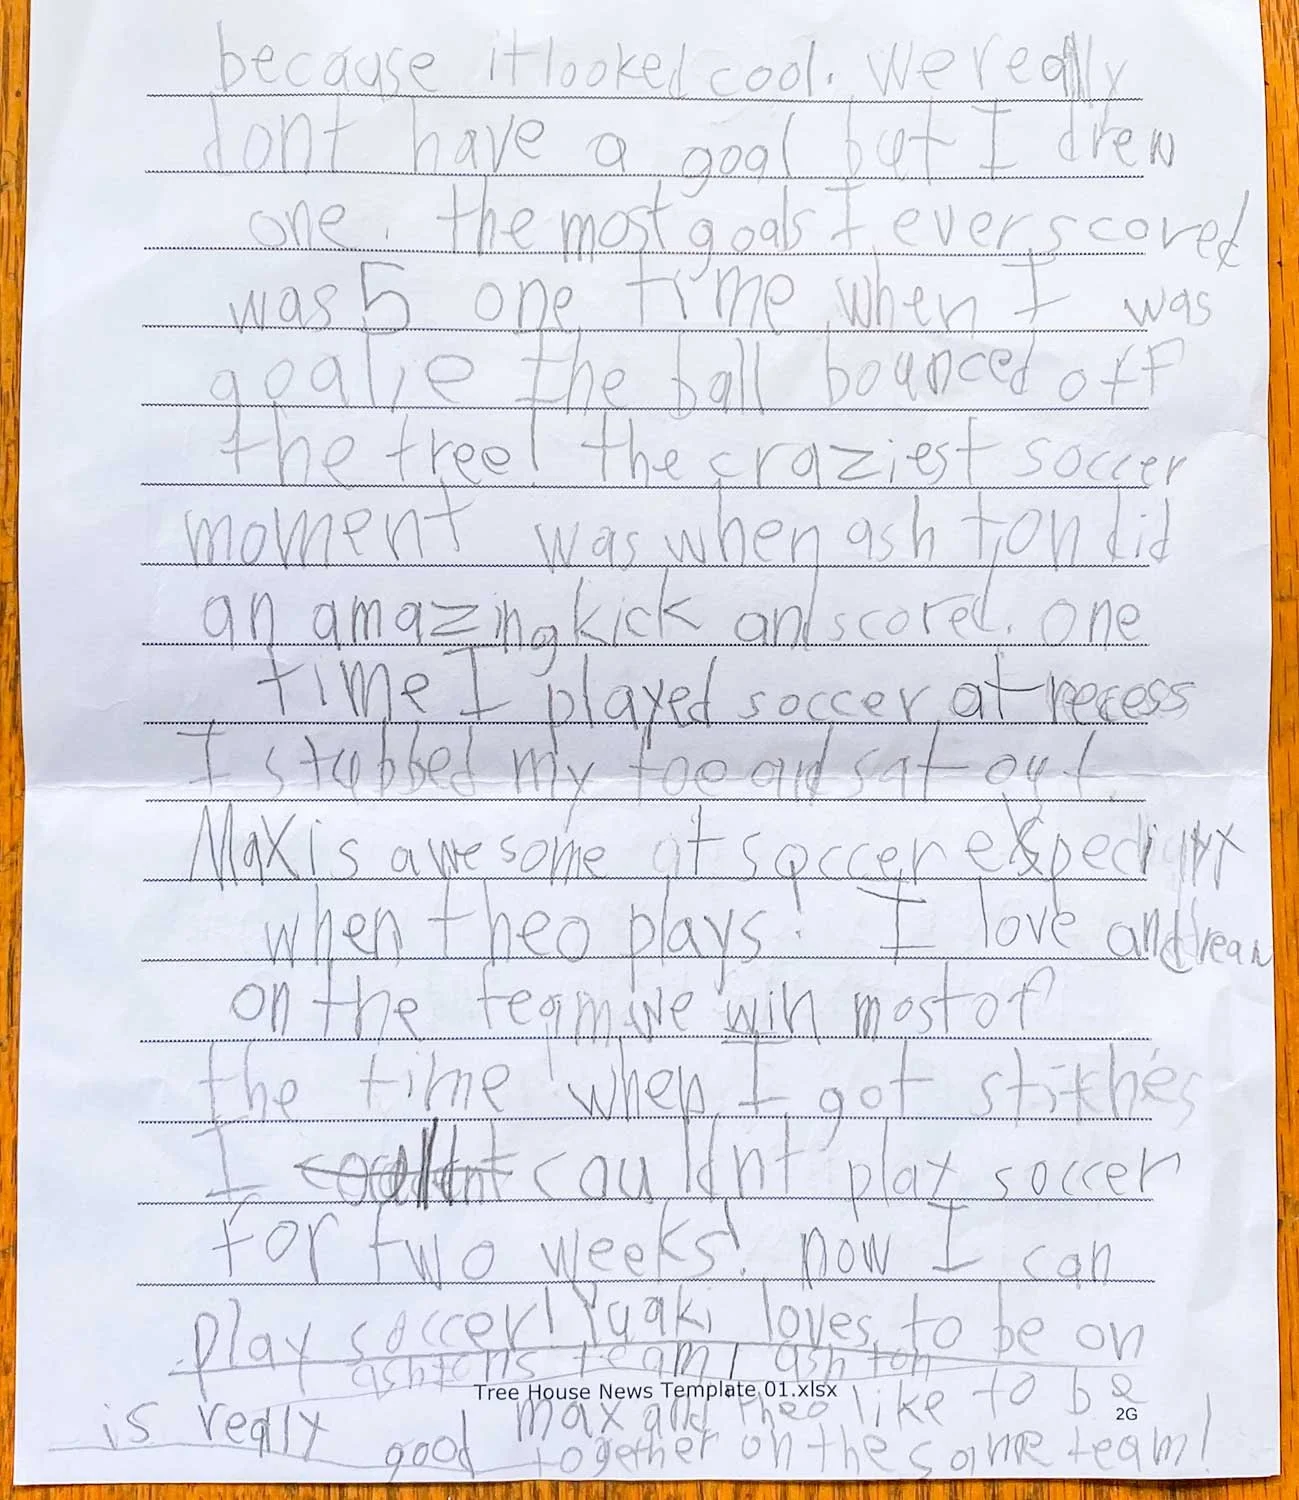 because it looked cool. We really
dont have a goal but I drew
one. the most goals I ever scored
was 5 one time when I was
goalie the ball bounced off
the tree! the craziest soccer
moment was when ashton did
an amazing kick and scored. one
time I played soccer at recess
I stubbed my toe and sat out
Max is awesome at soccer
when theo plays! I love
on the team we win most of
the time! when I got stitches
I couldnt play soccer
for two weeks! now I can
play soccer! Yuaki loves to be on
ashtons team! ashton
is really good
max and theo like to be
together on the same team!
Tree House News Template 01.xlsx
2G